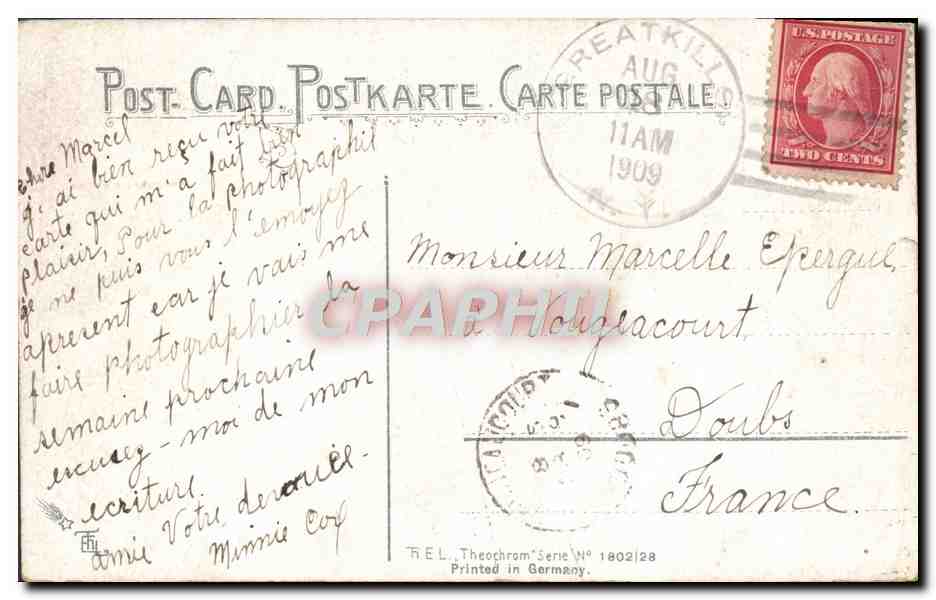 POST-CARD. POSTKARTE. CARTE POSTALE.
GREATKILLS
AUG
18
11AM
1909
N.Y.
U.S. POSTAGE
TWO CENTS
Chère Marcel
J'ai bien reçu votre
carte qui m'a fait bien
plaisir, Pour la photographil
je ne puis vous l'envoyez
apresent car je vais me
faire photographier la
semaine prochaine
excusez-moi de mon
ecriture.
Votre devouée
amie Minnie Cox
Monsieur Marcelle Epergue
à Vougeacourt
Doubs
France.
CPAPHIL
T.E.L. „Theochrom" Serie No 1802/28
Printed in Germany.